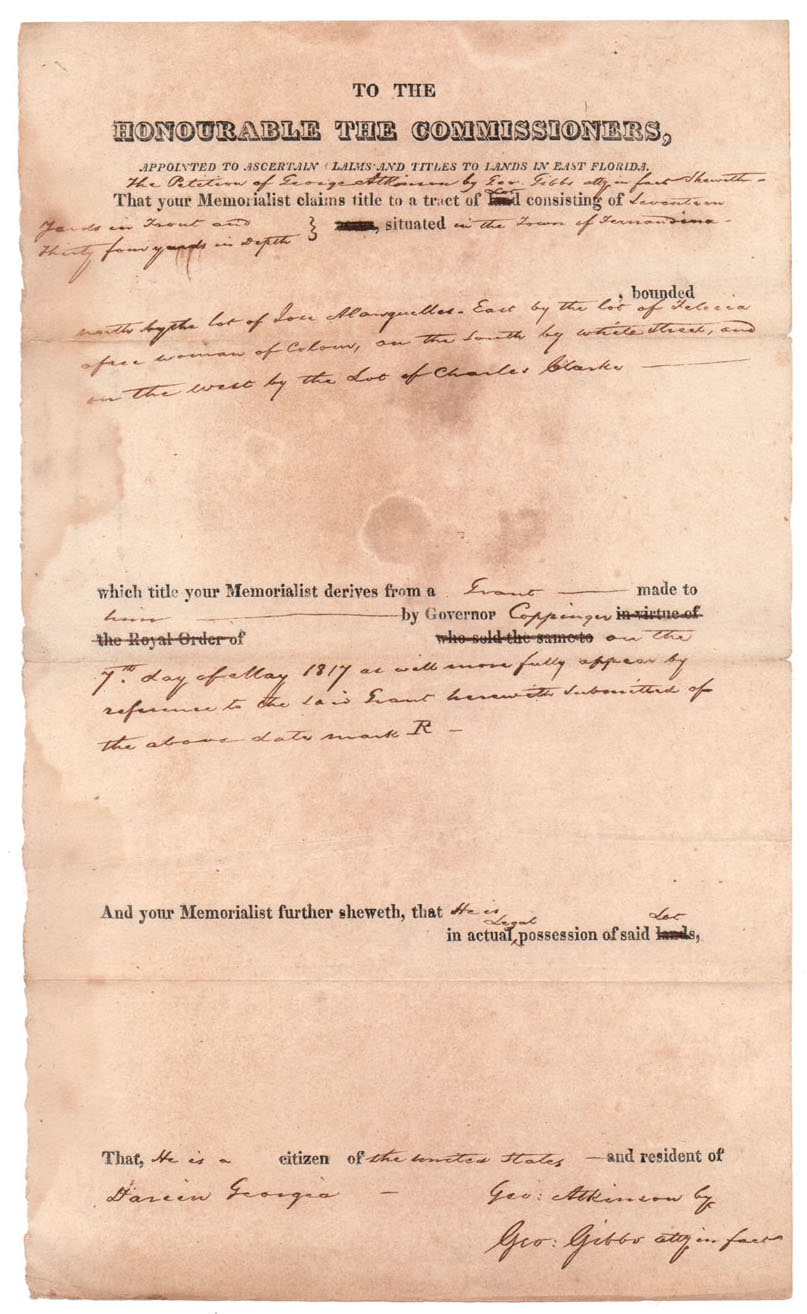 TO THE
HONOURABLE THE COMMISSIONERS,
APPOINTED TO ASCERTAIN CLAIMS AND TITLES TO LANDS IN EAST FLORIDA.
The Petition of George Atkinson by Geo. Gibbs atty in fact Sheweth -
That your Memorialist claims title to a tract of land Lot consisting of Seventeen
Yards in Front and
Thirty four yards in Depth } , situated in the Town of Fernandina -
, bounded
north by the lot of Jose - East by the lot of Felicia
a free woman of Colour, on the South by white Street, and
on the west by the Lot of Charles Clarke
which title your Memorialist derives from a Grant made to
him by Governor Coppinger in virtue of
the Royal Order of who sold the same to on the
7th day of May 1817 as will more fully appear by
reference to the said Grant herewith Submitted of
the above date mark R -
And your Memorialist further sheweth, that He is
in actual, Legal possession of said lands, Lot
That, He is a citizen of the United States - and resident of
Darein Georgia - Geo: Atkinson by
Geo: Gibbs atty in fact